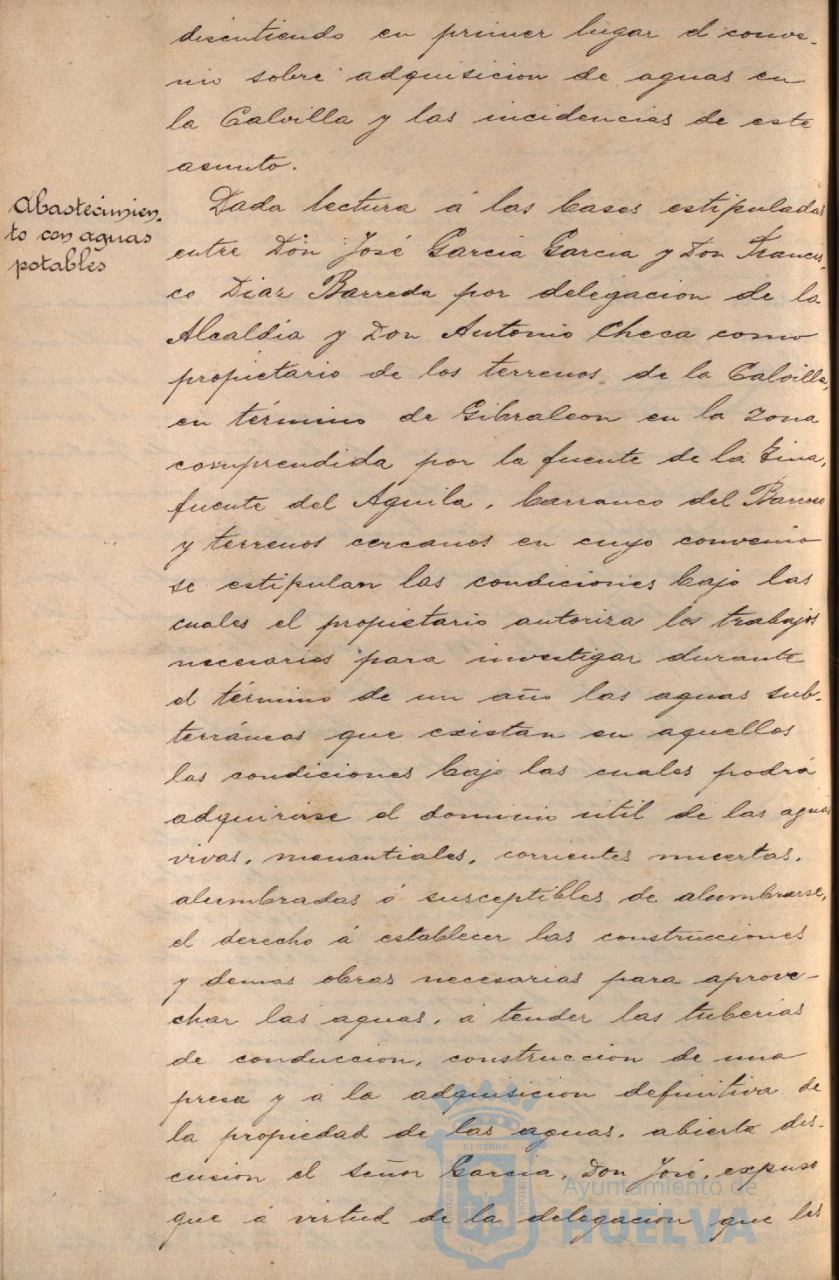 discutiendo en primer lugar el conve-
nio sobre adquisicion de aguas en
la Calvilla y las incidencias de este
asunto.
Abastecimien-
to con aguas
potables
Dada lectura á las bases estipuladas
entre Don José García Garcia y Don Francis-
co Diaz Barreda por delegacion de la
Alcaldia y Don Antonio Checa como
propietario de los terrenos de la Calvilla,
en término de Gibraleon en la zona
comprendida por la fuente de la
fuente del Aguila, barranco del Barroso
y terrenos cercanos en cuyo convenio
se estipulan las condiciones bajo las
cuales el propietario autoriza los trabajos
necesarios para investigar durante
el término de un año las aguas sub-
terráneas que existan en aquellos
las condiciones bajo las cuales podrá
adquirirse el dominio util de las aguas
vivas, manantiales, corrientes muertas,
alumbradas ó susceptibles de alumbrarse,
el derecho á establecer las construcciones
y demas obras necesarias para aprove-
char las aguas, á tender las tuberias
de conduccion, construccion de una
presa y á la adquisicion definitiva de
la propiedad de las aguas, abierta dis-
cusion el señor Garcia, Don José, expuso
que á virtud de la delegacion que les
Ayuntamiento de
HUELVA